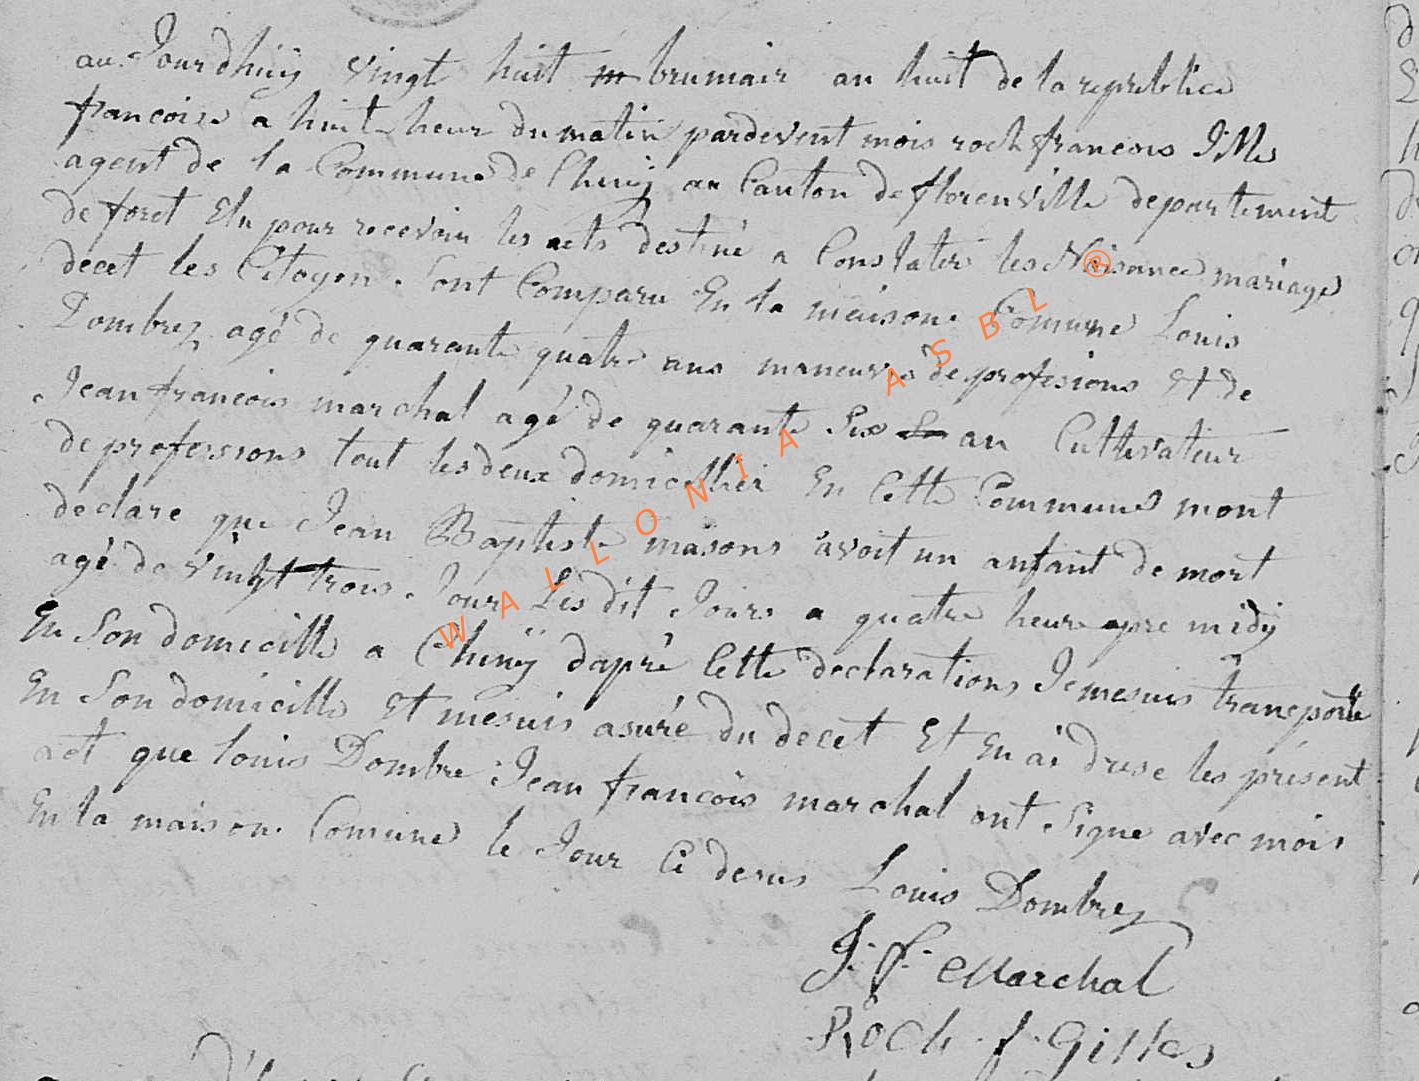 au Jourdhuÿ vingt huit m brumair an huit de la republice
francoise a huit heur du matin pardevent mois roch francois Jilles
agent de la Commune de Chinÿ au Canton de florenville departement
de foret Elu pour recevoir les acts destiné a Constater les Naisance mariage
decet les Citoyen. Sont Comparu En la maison Comune Louis
Dombrez agé de quarante quatre ans maneuvres de profesions Et de
Jean francois marchal agé de quarante Six an Cultivateur
de professions tout les deux domicellier En Cette Commune mont
declare que Jean Baptiste masons avoit un anfant de mort
agé de vingt trois Jour Les dit Jours a quatre heure apre midÿ
En Son domicille a Chinÿ daprè Cette declarations Je mesuis transporté
En Son domicille Et mesuis asuré du decet Et En ai drese les présent
act que louis Dombre Jean françois marchal ont Signe avec mois
En la maison Comune le Jour Ci desus Louis Dombrez
J. f. Marchal
Roch. f. Gilles
WALLONIA ASBL ®